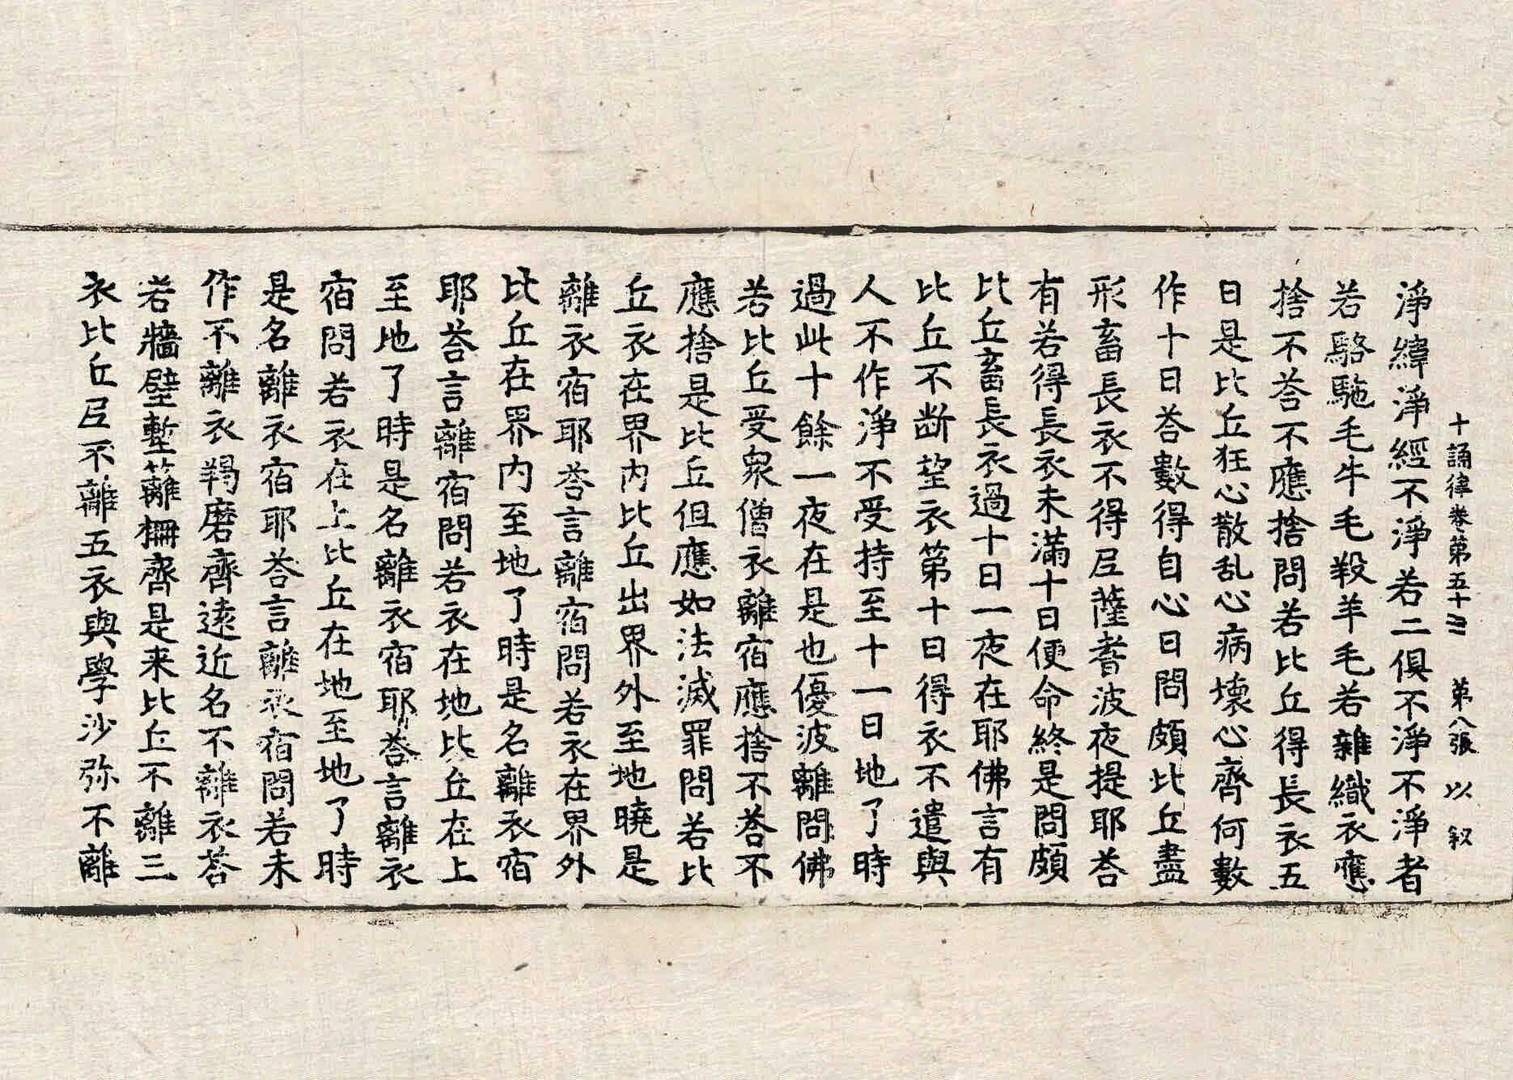 十誦律卷第五十三 第八張 以 𠬧
淨緯淨經不淨若二俱不淨不淨者
若駱駞毛牛毛羖羊毛若雜織衣應
捨不荅不應捨問若比丘得長衣五
日是比丘狂心散乱心病壞心齊何數
作十日荅數得自心日問頗比丘盡
形畜長衣不得尼薩耆波夜提耶荅
有若得長衣未滿十日便命終是問頗
比丘畜長衣過十日一夜在耶佛言有
比丘不断望衣第十日得衣不遣與
人不作淨不受持至十一日地了時
過此十餘一夜在是也優波離問佛
若比丘受衆僧衣離宿應捨不荅不
應捨是比丘但應如法滅罪問若比
丘衣在界內比丘出界外至地曉是
離衣宿耶荅言離宿問若衣在界外
比丘在界內至地了時是名離衣宿
耶荅言離宿問若衣在地比丘在上
至地了時是名離衣宿耶荅言離衣
宿問若衣在上比丘在地至地了時
是名離衣宿耶荅言離衣宿問若未
作不離衣羯磨齊遠近名不離衣荅
若牆壁塹蘺栅齊是来比丘不離三
衣比丘尼不離五衣與學沙弥不離